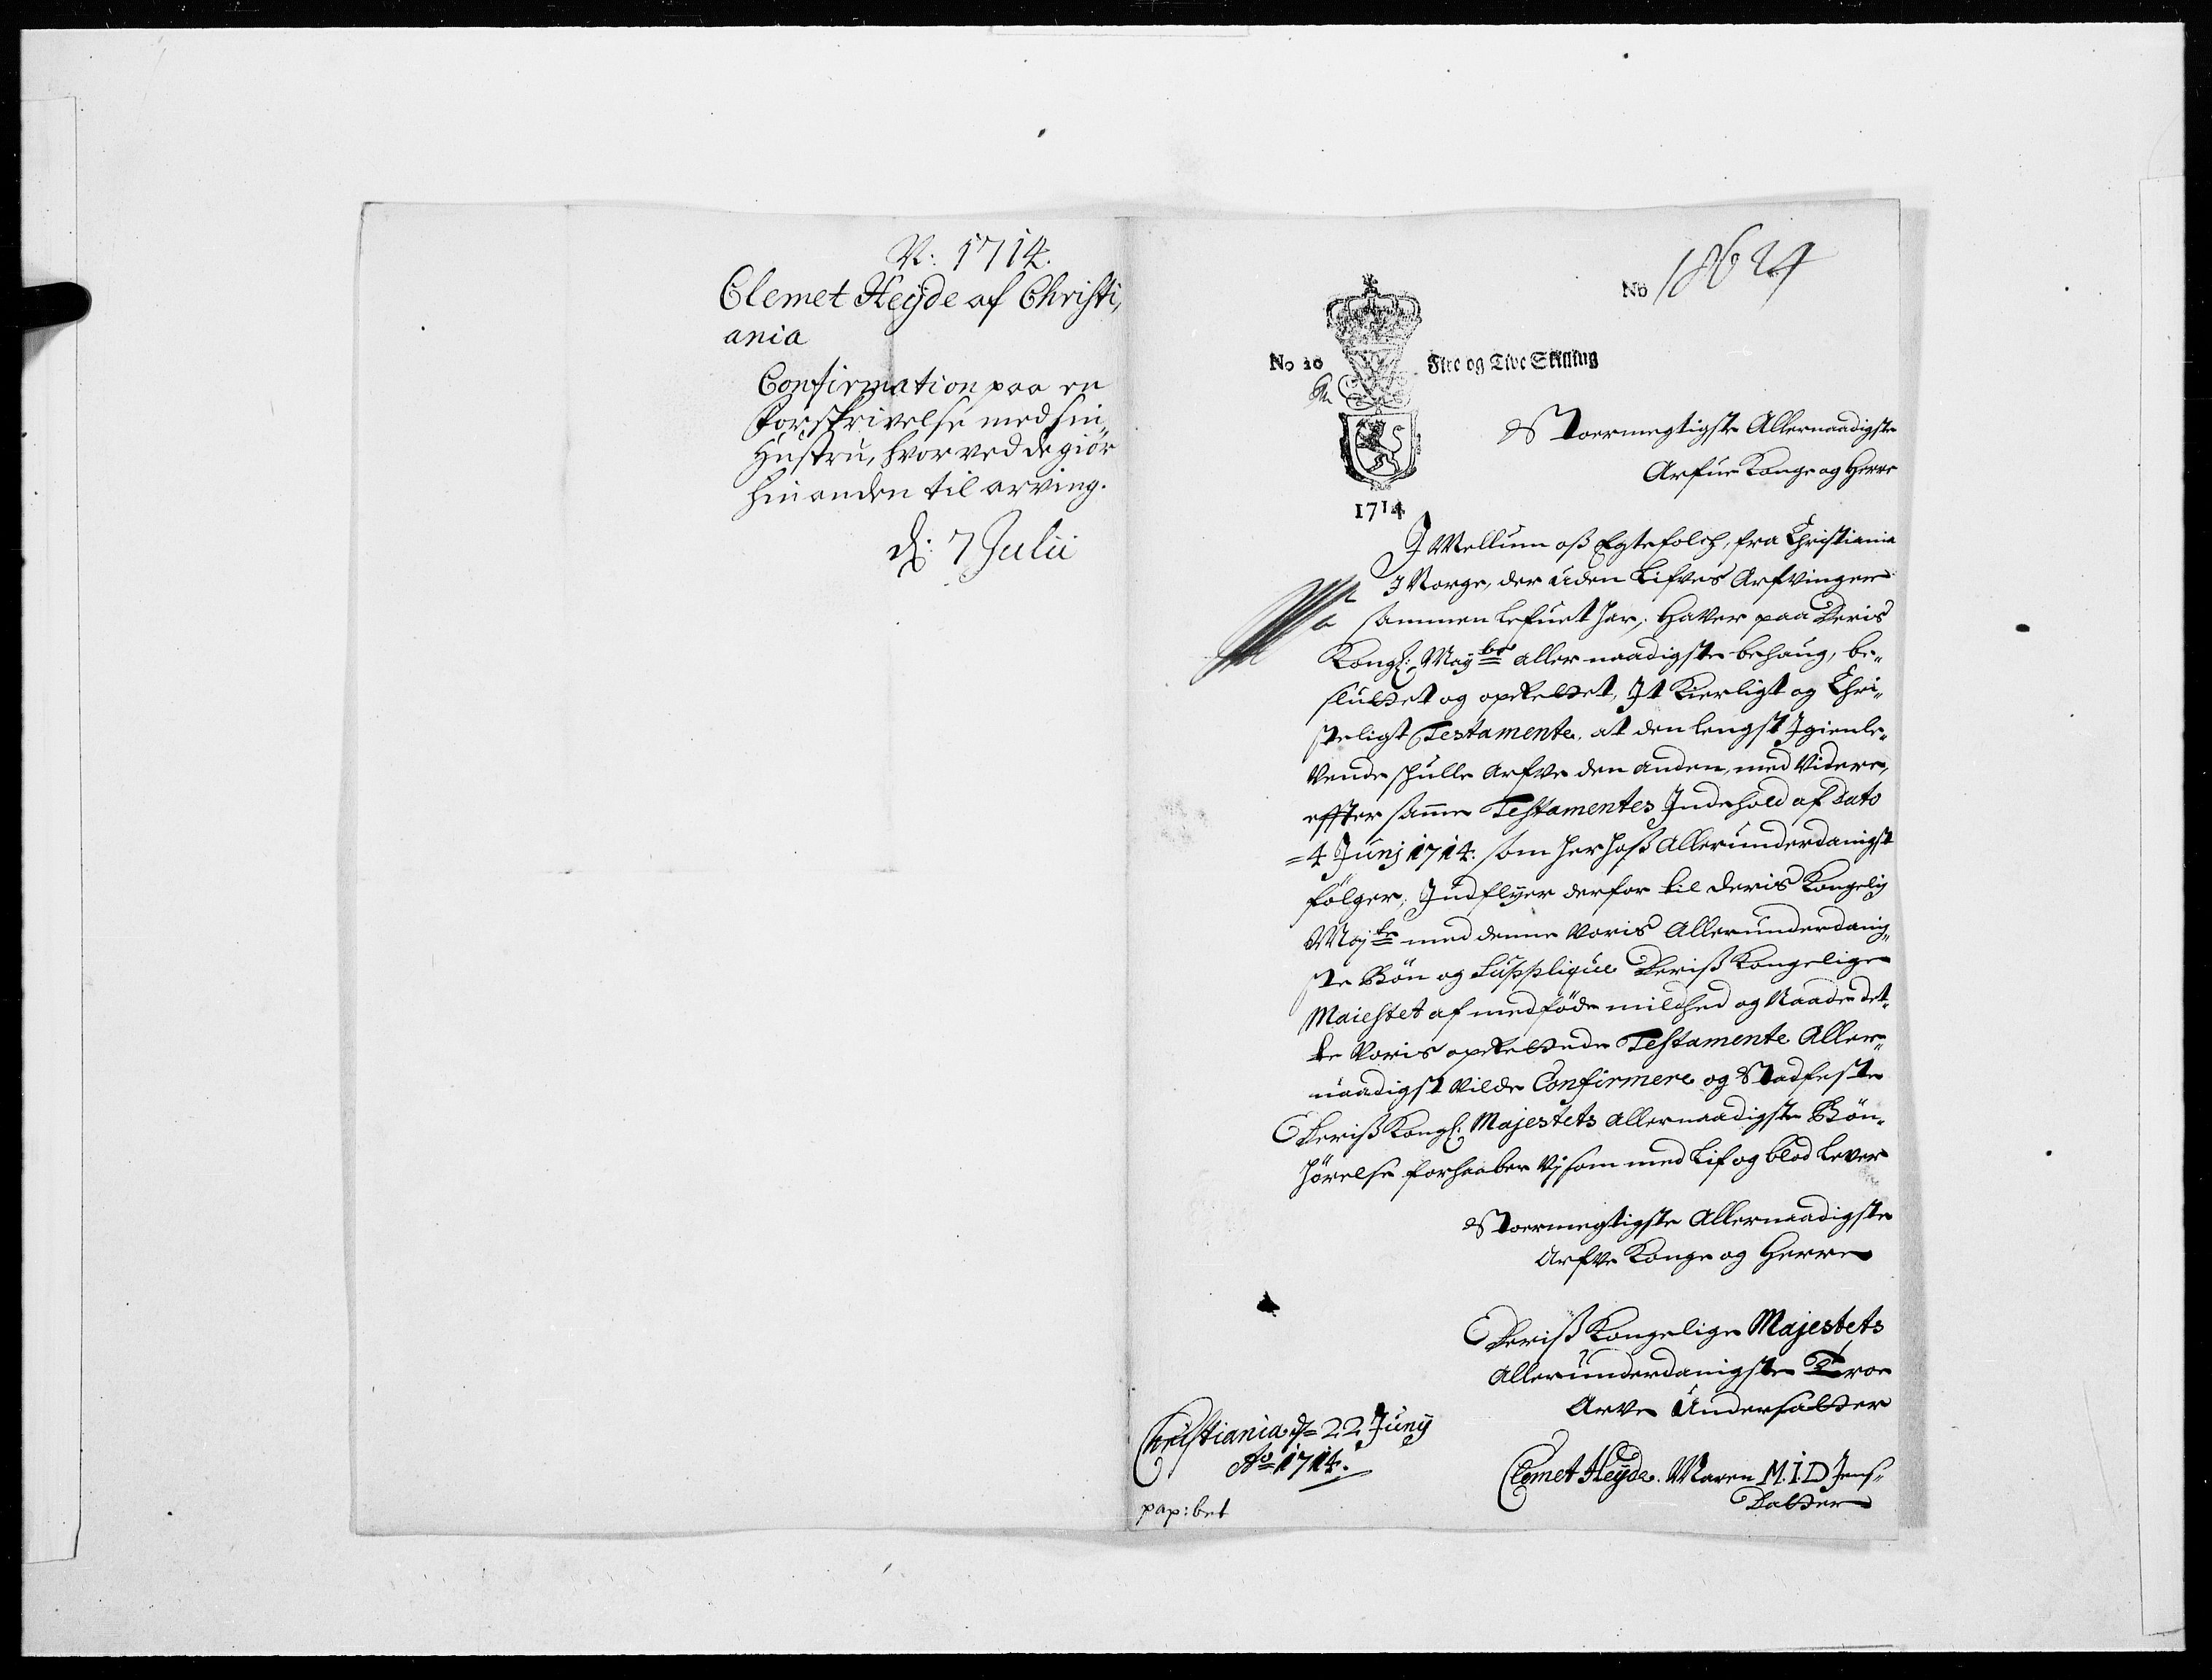 N: 1714.
Clemet Heyde af Christi,
ania
Confirmation paa en
Forskrivelse med sin
Hustru, hvorved de giør
hinanden til arving.
d: 7 Julii
No 18624
No 20 Fire og Tive Skilling
1714
Stoermegtigste Allernaadigste
Arfue Konge og Herre
I Mellum oss Egtefolch, fra Christiania
I Norge, der uden Lifves Arfvinger
sammen lefuet har, Haver paa Deris
Kongl: May:ts allernaadigste behaug, be„
sluttet og oprettet, It Kierligt og Chri„
steligt Testamente, at den lengst Igienle„
vende schulle Arfve den anden, med Videre,
effter samme Testamentes Indehold af dato
=4 Junj 1714. som herhoss Allerunderdanigst
følger; Indflyer derfor til deris Kongelig
Maj:ts med denne voris Allerunderdanig„
ste Bøn og Supplique Deriss Kongelige
Maiestet af medføde mildhed og Naade det„
te Voris oprettede Testamente Aller„
naadigst vilde Confirmere og Stadfeste
Deriss Kongl: Majestets Allernaadigste Bøn„
hørelse forhaaber Vj som med Lif og blod Lever
Stoermegtigste Allernaadigste
Arfve Konge og Herre
Deriss Kongelige Majestets
Allerunderdanigste Troe
Arve Undersatter
Christiania d= 22 Junij
Ao 1714.
Clemet Heyde. Maren M.I.D Jens„
Datter
pap: bet